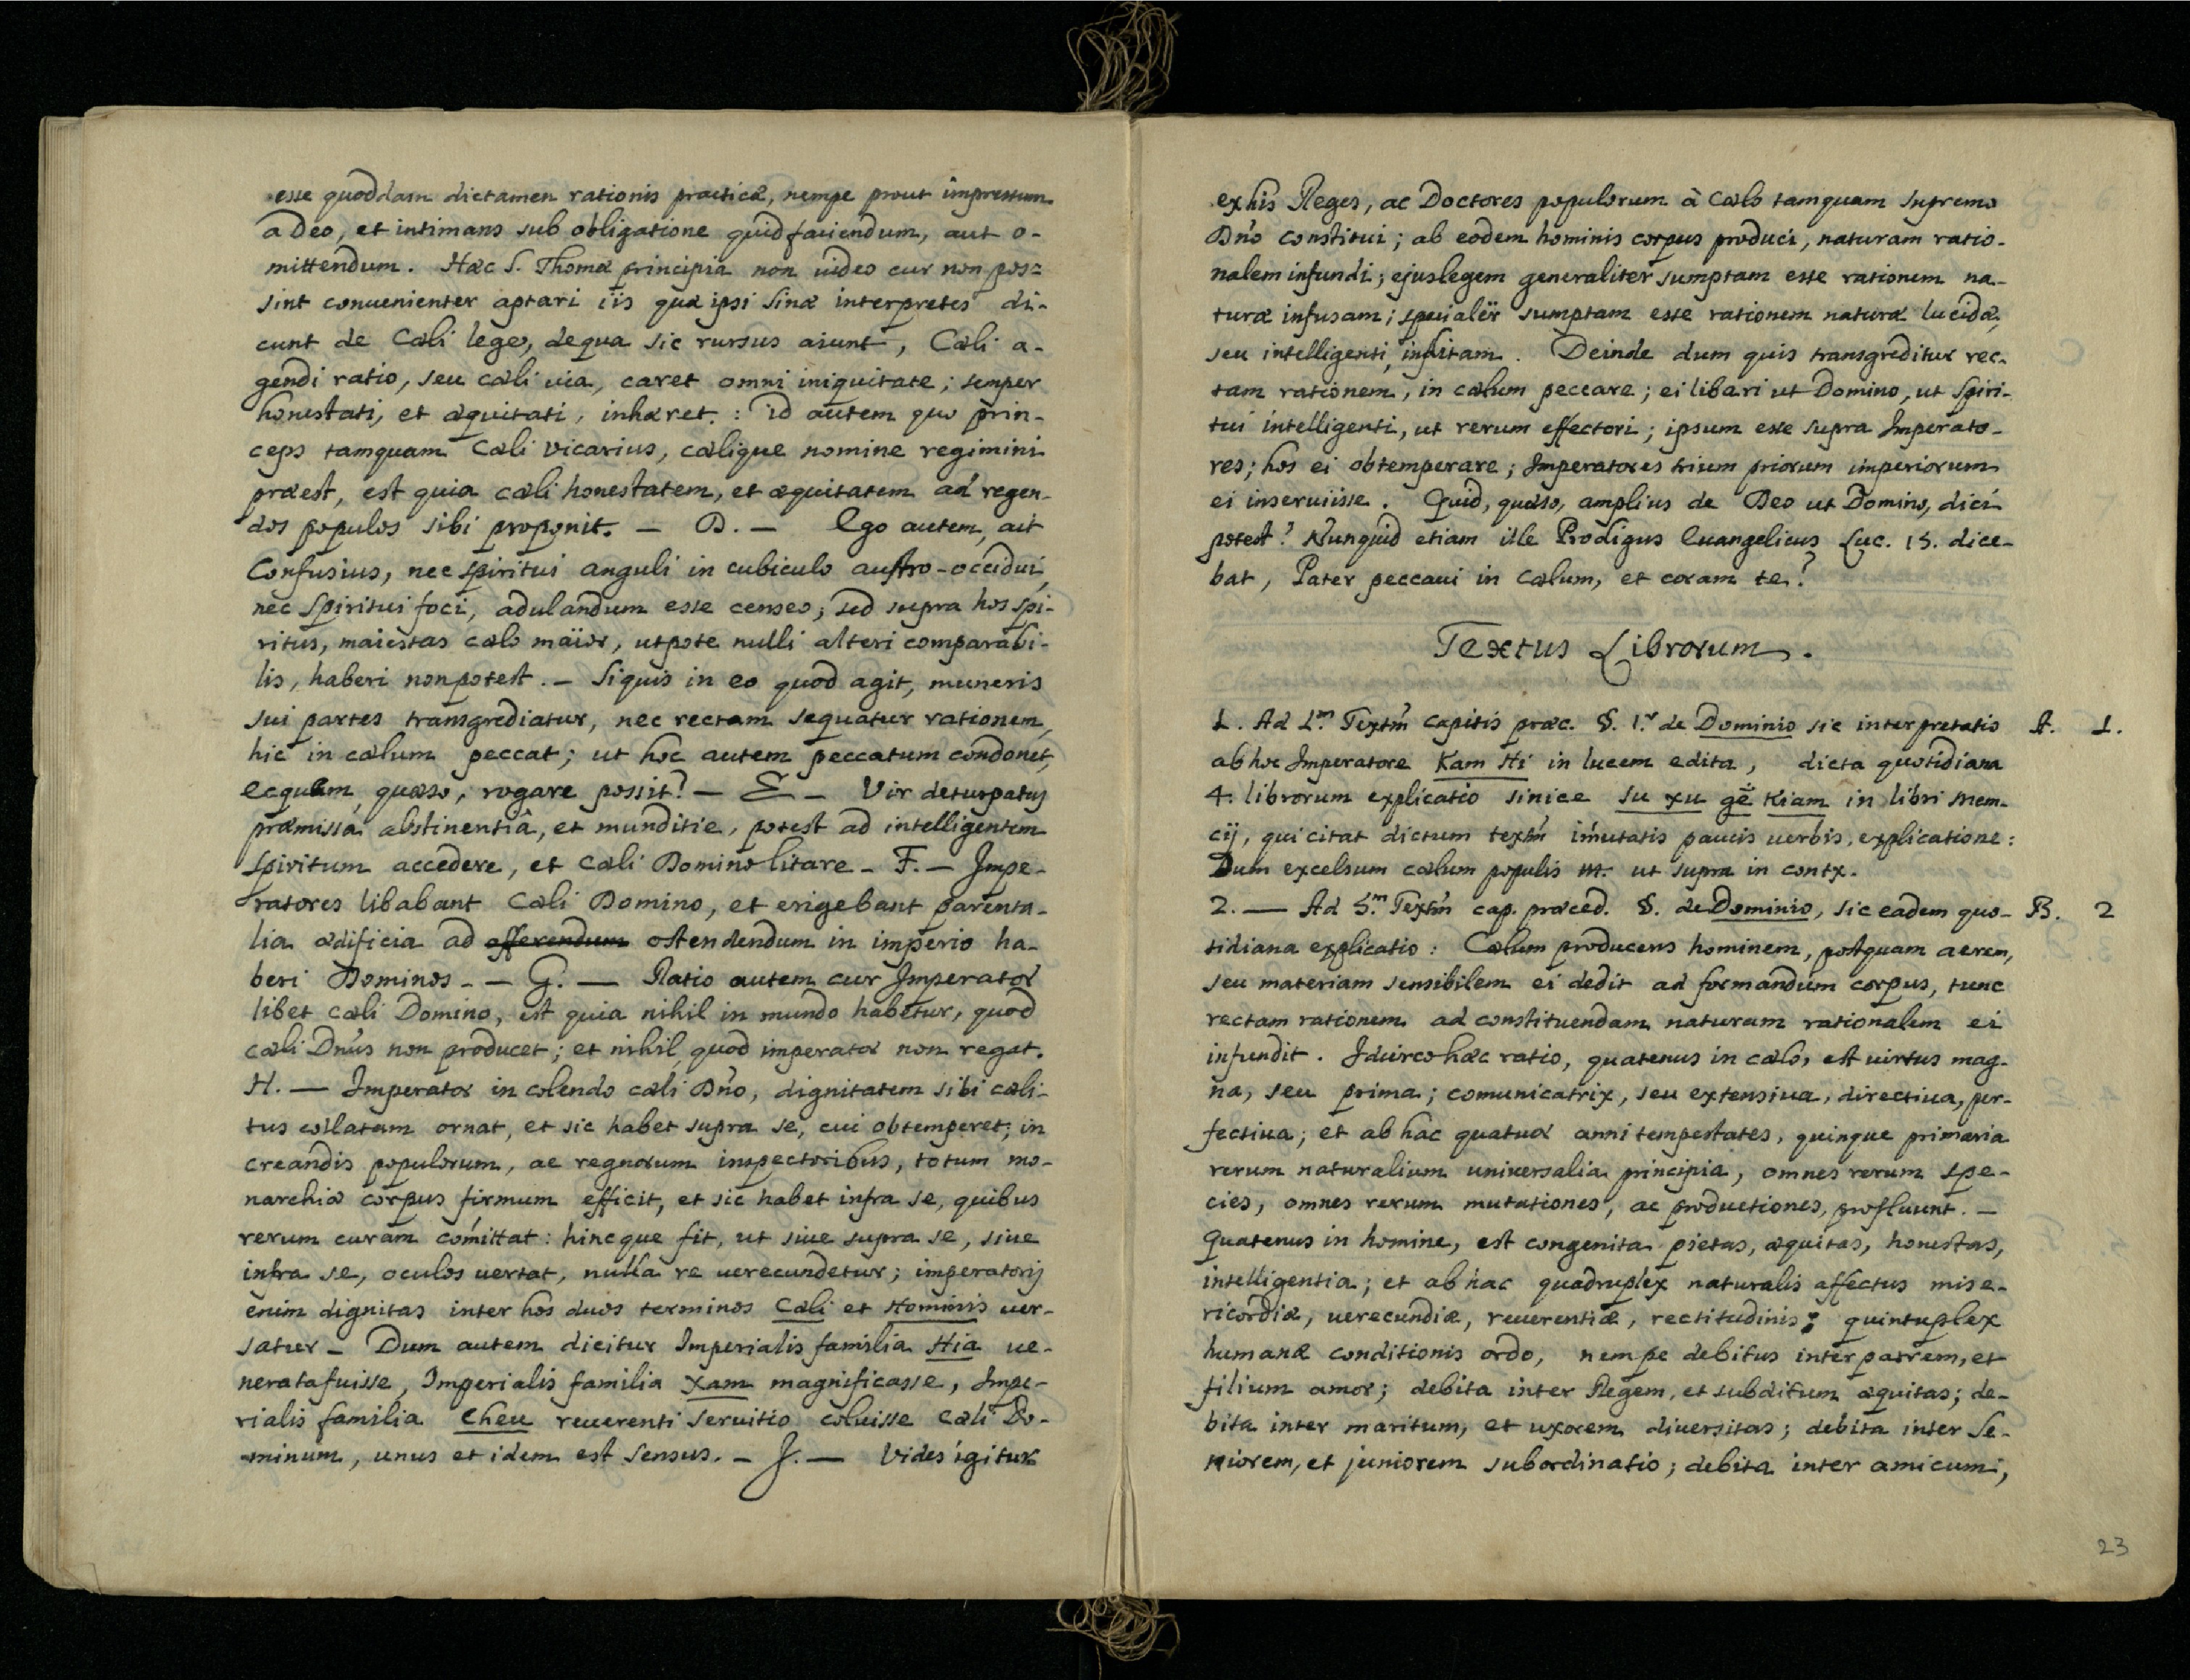 esse quoddam dictamen rationis practicæ, nempe prout impressum
a Deo, et intimans sub obligatione quid faciendum, aut o-
mittendum. Hæc S. Thomæ principia non uideo cur non pos=
sint conuenienter aptari iis quæ ipsi Sinæ interpretes di-
cunt de Cœli lege, de qua sic rursus aiunt, Cœli a-
gendi ratio, seu cœli uia, caret omni iniquitate; semper
honestati, et æquitati, inhæret: id autem quo prin-
ceps tamquam Cœli vicarius, cœlique nomine regimini
præest, est quia cœli honestatem, et æquitatem ad regen-
dos populos sibi proponit. — D. — Ego autem, ait
Confusius, nec spiritui anguli in cubiculo austro-occidui,
nec spiritui foci, adulandum esse censeo; sed supra hos spi-
ritus, maiestas cœlo maior, utpote nulli alteri comparabi-
lis, haberi non potest. — Si quis in eo quod agit, muneris
sui partes transgrediatur, nec rectam sequatur rationem,
hic in cœlum peccat; ut hoc autem peccatum condonet,
ecquem, quæso, rogare possit? — E — Vir deturpatus
præmissâ abstinentiâ, et munditie, potest ad intelligentem
spiritum accedere, et Cœli Domino litare — F. — Impe-
ratores libabant Cœli Domino, et erigebant parenta-
lia ædificia ad offerendum ostendendum in imperio ha-
beri Dominos — — G. — Ratio autem cur Imperator
libet cœli Domino, est quia nihil in mundo habetur, quod
cœli Dñus non producet; et nihil quod imperator non regat.
H. — Imperator in colendo cœli Dño, dignitatem sibi cœli-
tus collatam ornat, et sic habet supra se, cui obtemperet; in
creandis populorum, ac regnorum inspectoribus, totum mo-
narchiæ corpus firmum efficit, et sic habet infra se, quibus
rerum curam comittat: hincque fit, ut siue supra se, siue
infra se, oculos uertat, nulla re uerecundetur; imperatorij
enim dignitas inter hos duos terminos Cœli et Hominis uer-
satur — Dum autem dicitur Imperialis familia Hia ue-
nerata fuisse, Imperialis familia Xam magnificasse, Impe-
rialis familia Cheu reuerenti seruitio coluisse Cœli Do-
minum, unus et idem est sensus. — J. — Vides igitur
ex his Reges, ac Doctores populorum à Cœlo tamquam supremo
Dño constitui; ab eodem hominis corpus produci, naturam ratio-
nalem infundi; ejus legem generaliter sumptam esse rationem na-
turæ infusam; specialir̃ sumptam esse rationem naturæ lucidæ,
seu intelligenti, insitam. Deinde dum quis transgreditur rec-
tam rationem, in cœlum peccare; ei libari ut Domino, ut spiri-
tui intelligenti, ut rerum effectori; ipsum esse supra Imperato-
res; hos ei obtemperare; Imperatores trium priorum imperiorum
ei inseruiisse. Quid, quæso, amplius de Deo ut Domino, dici
potest? Nunquid etiam ille Prodigus Euangelicus Luc. 15. dice-
bat, Pater peccaui in Cœlum, et coram te?
Textus Librorum.
1. Ad 1.m Textm̃ capitis præc. §. 1.º de Dominio sic interpretatio A. 1.
ab hoc Imperatore Kam Hi in lucem edita, dicta quotidiana
4. librorum explicatio sinice su xu gĕ kiam in libri Mem-
cij, qui citat dictum textm̃ im̃utatis paucis uerbis, explicatione:
Dum excelsum cœlum populis etc. ut supra in contx.
2. — Ad 5.m Textm̃ cap. præced. §. de Dominio, sic eadem quo- B. 2
tidiana explicatio: Cœlum producens hominem, postquam aerem,
seu materiam sensibilem ei dedit ad formandum corpus, tunc
rectam rationem ad constituendam naturam rationalem ei
infundit. Idcirco hæc ratio, quatenus in cœlo, est uirtus mag-
na, seu prima; comunicatrix, seu extensiua, directiua, per-
fectiua; et ab hac quatuor anni tempestates, quinque primaria
rerum naturalium uniuersalia principia, omnes rerum spe-
cies, omnes rerum mutationes, ac productiones, profluunt. —
Quatenus in homine, est congenita pietas, æquitas, honestas,
intelligentia; et ab hac quadruplex naturalis affectus mise-
ricordiæ, uerecundiæ, reuerentiæ, rectitudinis; quintuplex
humanæ conditionis ordo, nempe debitus inter patrem, et
filium amor; debita inter Regem, et subditum æquitas; de-
bita inter maritum, et uxorem diuersitas; debita inter Se-
niorem, et juniorem subordinatio; debita inter amicum,
23